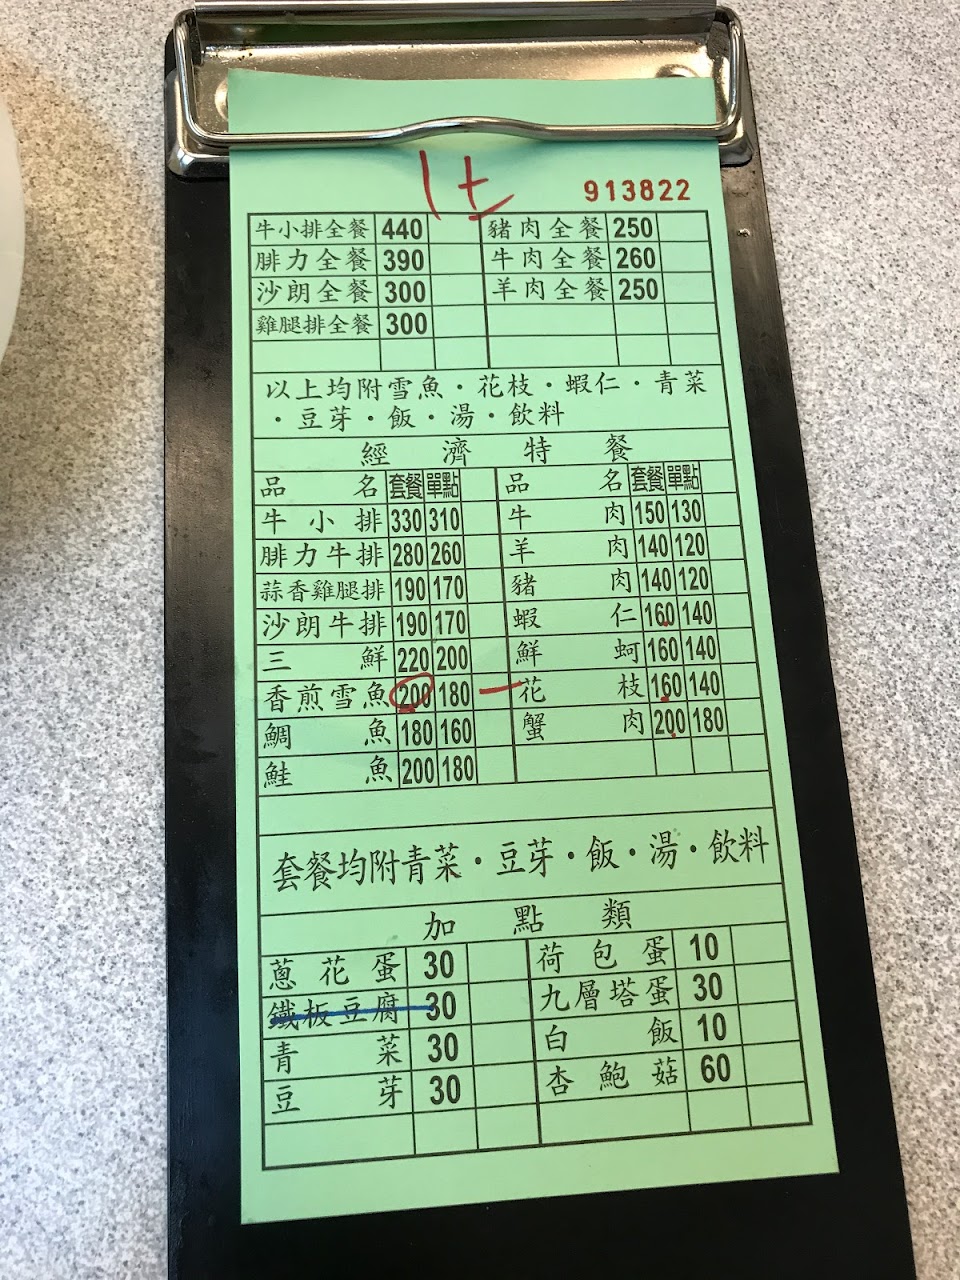 913822
牛小排全餐 440 豬肉全餐 250
腓力全餐 390 牛肉全餐 260
沙朗全餐 300 羊肉全餐 250
雞腿排全餐 300
以上均附雪魚・花枝・蝦仁・青菜
・豆芽・飯・湯・飲料
經濟特餐
品名 套餐 單點 品名 套餐 單點
牛小排 330 310 牛肉 150 130
腓力牛排 280 260 羊肉 140 120
蒜香雞腿排 190 170 豬肉 140 120
沙朗牛排 190 170 蝦仁 160 140
三鮮 220 200 鮮蚵 160 140
香煎雪魚 200 180 一 花枝 160 140
鯛魚 180 160 蟹肉 200 180
鮭魚 200 180
套餐均附青菜・豆芽・飯・湯・飲料
加點類
蔥花蛋 30 荷包蛋 10
鐵板豆腐 30 九層塔蛋 30
青菜 30 白飯 10
豆芽 30 杏鮑菇 60